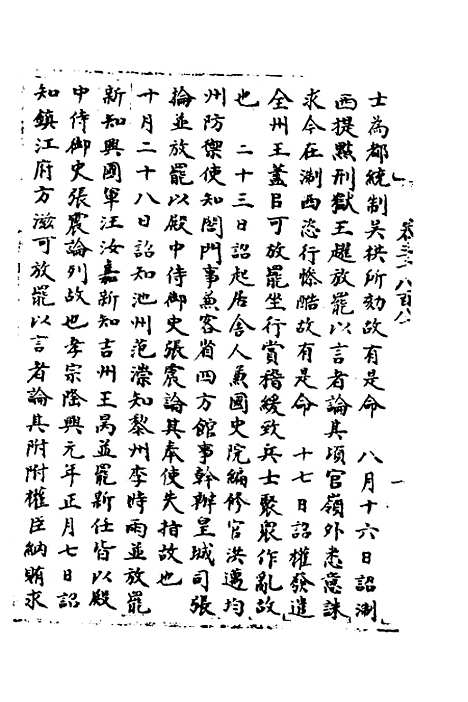 士為都統制吳拱所劾故有是命　八月十六日詔淛
西提點刑獄王趯放罷以言者論其頃官嶺外悉意誅
求今在淛西恣行慘酷故有是命　十七日詔權發遣
全州王蓋臣可放罷坐行賞稽緩致兵士聚眾作亂故
也　二十三日詔起居舍人兼國史院編修官洪邁均
州防禦使知閤門事兼客省四方館事幹辦皇城司張
掄並放罷以殿中侍御史張震論其奉使失指故也
十月二十八日詔知池州范漴知黎州李時雨並放罷
新知興國軍汪汝嘉新知吉州王曮並罷新任皆以殿
中侍御史張震論列故也孝宗隆興元年正月七日詔
知鎮江府方滋可放罷以言者論其附附權臣納賄求